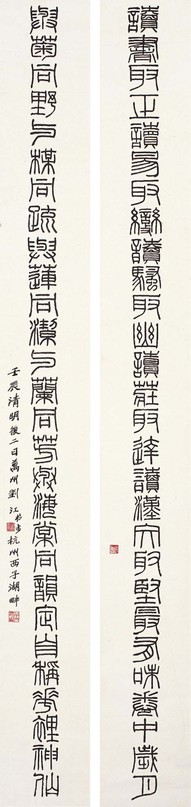 讀書取正讀易取變讀騷取幽讀莊取達讀漢文取堅最有味卷中歲月
與菊同野与楳同疏與蓮同潔与蘭同芳與海棠同韻定自稱花裡神仙
壬辰清明後二日萬州劉江書于杭州西子湖畔